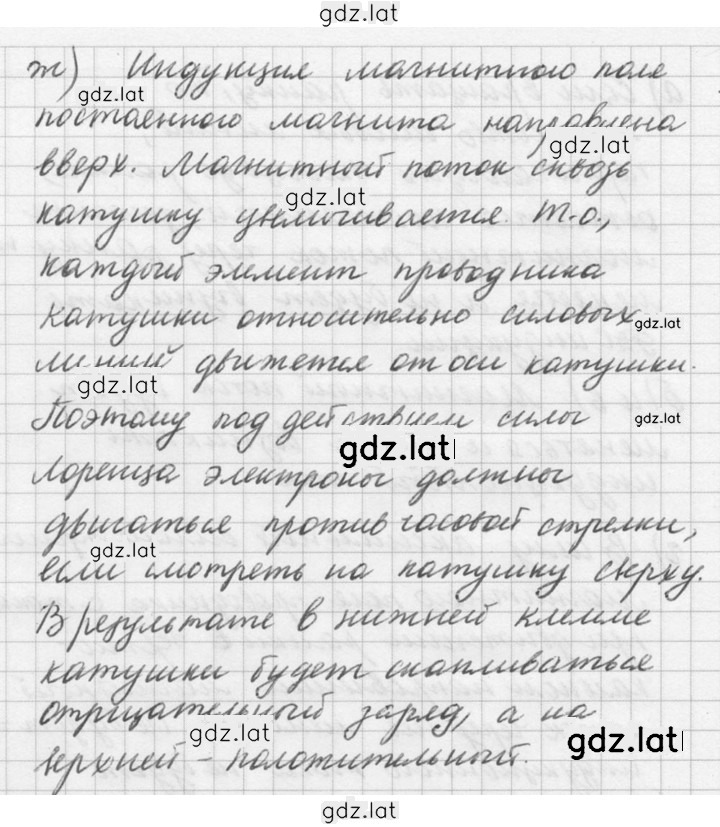 gdz.lat
ж) Индукция магнитного поля
gdz.lat
постоенного магнита направлена
gdz.lat
вверх. Магнитный поток сквозь
gdz.lat
катушку увеличивается. Т.о.,
каждый элемент проводника
катушки относительно силовых
gdz.lat
линий движется от оси катушки.
gdz.lat
Поэтому под действием силы
gdz.lat
gdz.lat
Лоренца электроны должны
двигаться против часовой стрелки,
gdz.lat
если смотреть на катушку сверху.
В результате в нижней клемме
катушки будет скапливаться
отрицательный заряд, а на
gdz.lat
gdz.lat
верхней - положительный.
gdz.lat